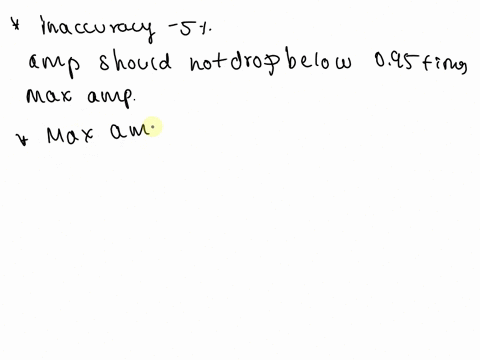 * Inaccuracy -5%.
amp should not drop below 0.95 times
Max amp.
* Max am